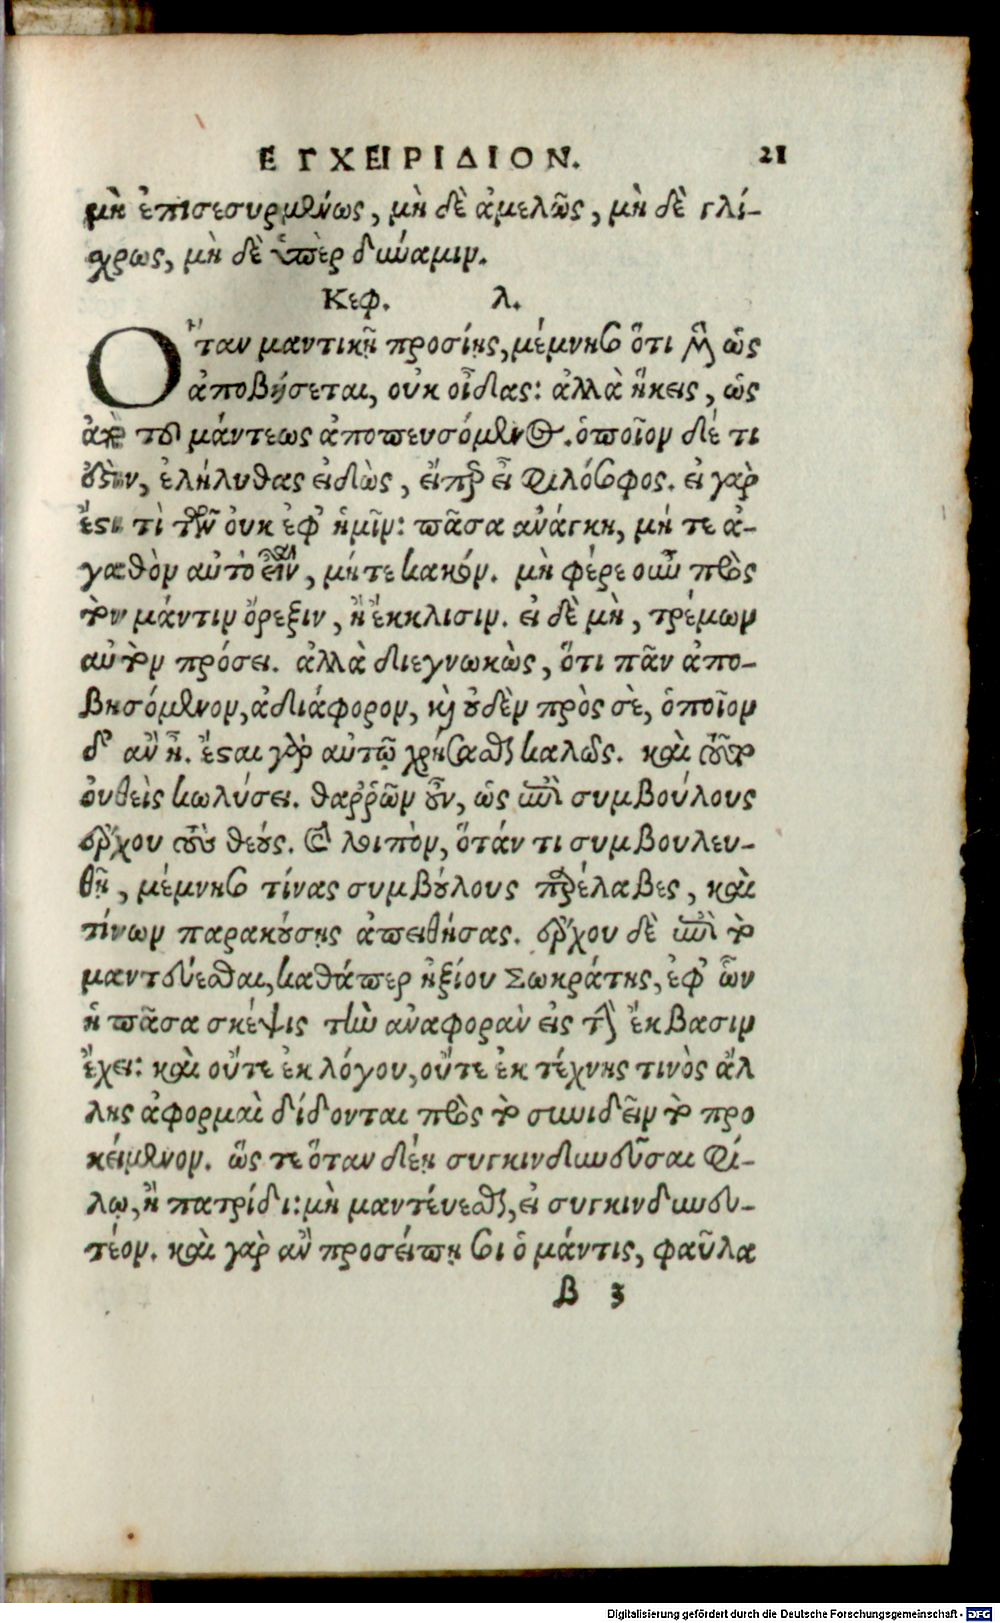 ΕΓΧΕΙΡΙΔΙΟΝ. 21
μὴ ἐπισεσυρμένως, μὴ δὲ ἀμελῶς, μὴ δὲ γλί-
χρως, μὴ δὲ ὑπὲρ δύναμιν.
Κεφ. λ.
Ὅταν μαντικῇ προσίῃς, μέμνησο ὅτι μὲν ὡς
ἀποβήσεται, οὐκ οἶδας: ἀλλὰ ἥκεις, ὡς
παρὰ τοῦ μάντεως ἀποπευσόμενος. ὁποῖον δέ τι
ἐλήλυθας εἰδὼς, εἴπερ εἶ φιλόσοφος. εἰ γάρ
ἐστι τὶ τῶν οὐκ ἐφ' ἡμῖν: πᾶσα ἀνάγκη, μή τε ἀ-
γαθὸν αὐτὸ εἶναι, μήτε κακόν. μὴ φέρε οὖν πρὸς
τὸν μάντιν ὄρεξιν, ἢ ἔκκλισιν. εἰ δὲ μὴ, τρέμων
αὐτὸν πρόσει. ἀλλὰ διεγνωκὼς, ὅτι πᾶν ἀπο-
βησόμενον, ἀδιάφορον, καὶ οὐδὲν πρὸς σὲ, ὁποῖον
δ' ἂν ᾖ. ἔσται γὰρ αὐτῷ χρήσασθαι καλῶς. καὶ τοῦτο
οὐθεὶς κωλύσει. θαῤῥῶν οὖν, ὡς ἐπὶ συμβούλους
ἔρχου τοὺς θεούς. καὶ λοιπὸν, ὅτάν τι συμβουλευ-
θῇ, μέμνησο τίνας συμβούλους προσέλαβες, καὶ
τίνων παρακούσῃς ἀπειθήσας. ἔρχου δὲ ἐπὶ τὸ
μαντεύεσθαι, καθάπερ ἠξίου Σωκράτης, ἐφ' ὧν
ἡ πᾶσα σκέψις τὴν ἀναφορὰν εἰς τὴν ἔκβασιν
ἔχει: καὶ οὔτε ἐκ λόγου, οὔτε ἐκ τέχνης τινὸς ἄλ
λης ἀφορμαὶ δίδονται πρὸς τὸ συνιδεῖν τὸ προ
κείμενον. ὥς τε ὅταν δέῃ συγκινδυνεῦσαι φί-
λῳ, ἢ πατρίδι: μὴ μαντέυεσθαι, εἰ συγκινδυνευ-
τέον. καὶ γὰρ ἂν προσείπῃ σοι ὁ μάντις, φαῦλα
B 3
Digitalisierung gefördert durch die Deutsche Forschungsgemeinschaft - DFG